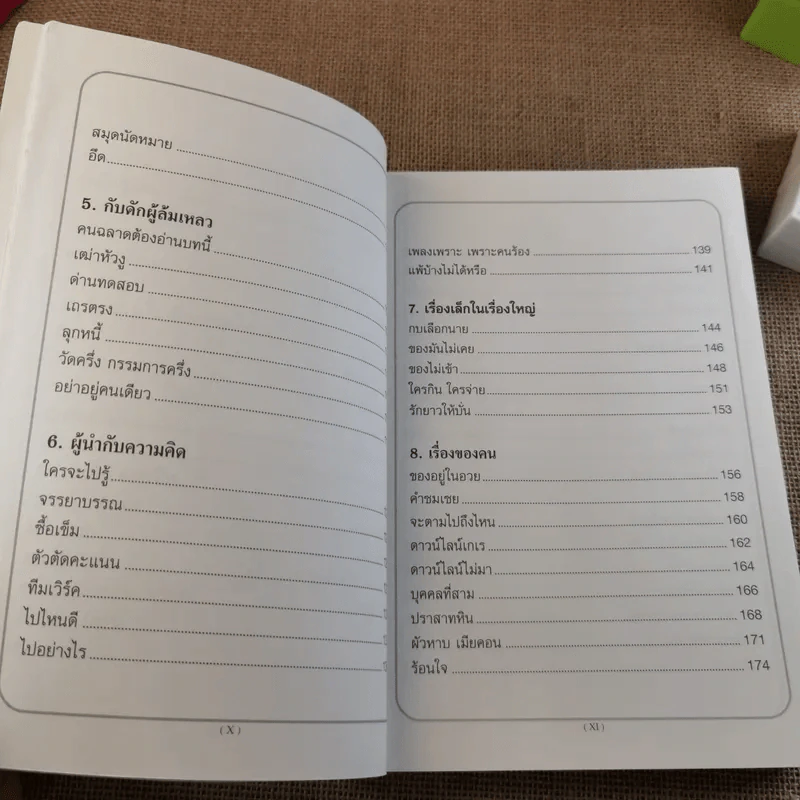 สมุดนัดหมาย
อึด
5. กับดักผู้ล้มเหลว
คนฉลาดต้องอ่านบทนี้
เฒ่าหัวงู
ด่านทดสอบ
เถรตรง
ลุกหนี้
วัดครึ่ง กรรมการครึ่ง
อย่าอยู่คนเดียว
6. ผู้นำกับความคิด
ใครจะไปรู้
จรรยาบรรณ
ซื้อเข็ม
ตัวตัดคะแนน
ทีมเวิร์ค
ไปไหนดี
ไปอย่างไร
( X )
เพลงเพราะ เพราะคนร้อง 139
แพ้บ้างไม่ได้หรือ 141
7. เรื่องเล็กในเรื่องใหญ่
กบเลือกนาย 144
ของมันไม่เคย 146
ของไม่เช้า 148
ใครกิน ใครจ่าย 151
รักยาวให้บั่น 153
8. เรื่องของคน
ของอยู่ในอวย 156
คำชมเชย 158
จะตามไปถึงไหน 160
ดาวน์ไลน์เกเร 162
ดาวน์ไลน์ไม่มา 164
บุคคลที่สาม 166
ปราสาทหิน 168
ผัวหาบ เมียคอน 171
ร้อนใจ 174
( XI )